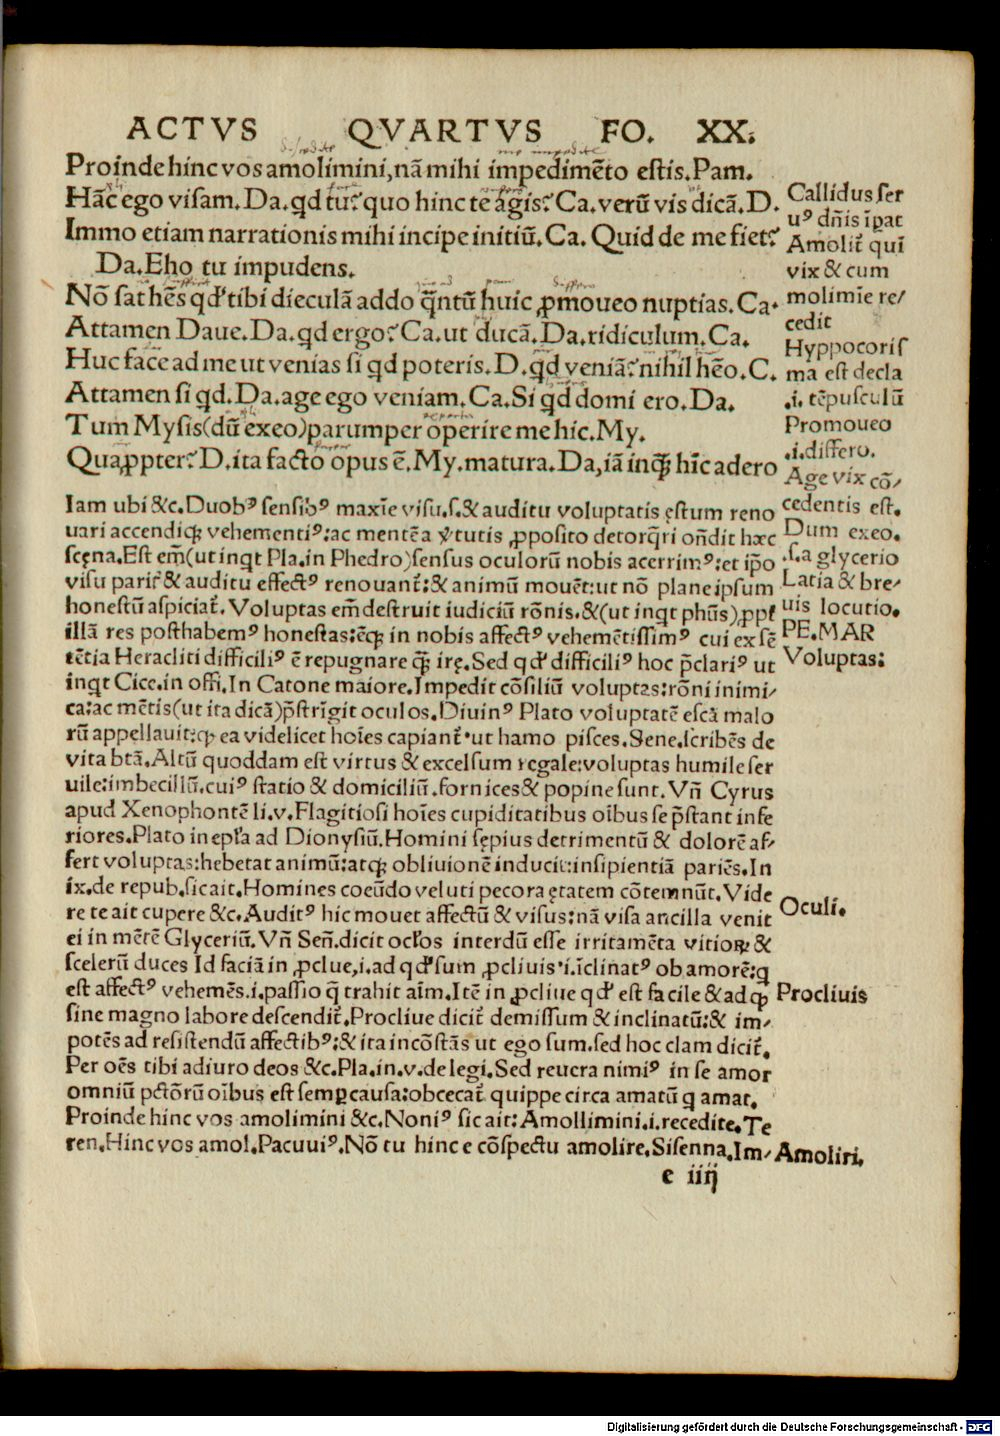 ACTVS QVARTVS FO. XX.
Proinde hinc vos amolimini, nã mihi impedimẽto estis. Pam.
Hãc ego visam. Da. qd tu? quo hinc te agis? Ca. verũ vis dicã. D.
Immo etiam narrationis mihi incipe initiũ. Ca. Quid de me fiet?
Da. Eho tu impudens.
Nõ sat hẽs qđ tibi dieculã addo q̃ntũ huic ꝓmoueo nuptias. Ca.
Attamen Daue. Da. qd ergo? Ca. ut ducã. Da. ridiculum. Ca.
Huc face ad me ut venias si qd poteris. D. qd veniã? nihil hẽo. C.
Attamen si qd. Da. age ego veniam. Ca. Si qd domi ero. Da.
Tum Mysis (dũ exeo) parumper operire me hic. My.
Quaꝓpter? D. ita facto opus ẽ. My. matura. Da, iã inq̃ hic adero
Callidus ser
uꝰ dñis ĩpat
Amolit̃ qui
vix & cum
molimĩe re/
cedit
Hyppocoris
ma est decla
.i. tẽpusculũ
Promoueo
.i. differo.
Age vix cõ/
cedentis est.
Dum exeo.
.s. a glycerio
Latia & bre/
uis locutio.
PE. MAR
Voluptas:
Iam ubi &c. Duobꝰ sensibꝰ maxĩe visu .s. & auditu voluptatis ęstum reno
uari accendiqꝫ vehementiꝰ: ac mentẽ a v̾tutis ꝓposito detorq̃ri oñdit hæc
scęna. Est em̃ (ut inqt Pla. in Phedro) sensus oculorũ nobis acerrimꝰ: et ip̃o
visu parit̃ & auditu effectꝰ renouant̃: & animũ mouẽt: ut nõ plane ipsum
honestũ aspiciat̃. Voluptas em̃ destruit iudiciũ rõnis. & (ut inqt phũs) ꝓpt̃
illã res posthabemꝰ honestas: ẽqꝫ in nobis affectꝰ vehemẽtissimꝰ cui ex sẽ
tẽtia Heracliti difficiliꝰ ẽ repugnare q̃ꝫ irę. Sed qđ difficiliꝰ hoc p̃clariꝰ ut
inqt Cice. in offi. In Catone maiore. Impedit cõsiliũ voluptas: rõni inimi/
ca: ac mẽtis (ut ita dicã) p̃stringit oculos. Diuinꝰ Plato voluptatẽ escã malo
rũ appellauit: qꝫ ea videlicet hoĩes capiant̃ ut hamo pisces. Sene. scribẽs de
vita btã. Altũ quoddam est virtus & excelsum regale: voluptas humile ser
uile: imbecillũ. cuiꝰ statio & domiciliũ. fornices & popine sunt. Vñ Cyrus
apud Xenophontẽ li. v. Flagitiosi hoĩes cupiditatibus oĩbus se p̃stant infe
riores. Plato in epl̃a ad Dionysiũ. Homini sępius detrimentũ & dolorẽ af/
fert voluptas: hebetat animũ: atqꝫ obliuionẽ inducit: insipientiã pariẽs. In
ix. de repub. sic ait. Homines coeũdo veluti pecora ętatem cõtemnũt. Vide
re te ait cupere &c. Auditꝰ hic mouet affectũ & visus: nã visa ancilla venit
ei in mẽtẽ Glyceriũ. Vñ Señ. dicit ocl̃os interdũ esse irritamẽta vitioꝝ &
scelerũ duces Id faciã in ꝓclue, i. ad qđ sum ꝓcliuis .i. ĩclinatꝰ ob amorẽ: q
est affectꝰ vehemẽs. i. passio q̃ trahit aĩm. Itẽ in ꝓcliue qđ est facile & ad qꝫ
sine magno labore descendit̃. Procliue dicit̃ demissum & inclinatũ: & im/
potẽs ad resistendũ affectibꝰ: & ita incõstãs ut ego sum. sed hoc clam dicit̃.
Per oẽs tibi adiuro deos &c. Pla. in. v. de legi. Sed reuera nimiꝰ in se amor
omniũ pctõrũ oĩbus est semꝑ causa: obcecat̃ quippe circa amatũ q amat.
Proinde hinc vos amolimini &c. Noniꝰ sic ait: Amollimini. i. recedite. Te
ren. Hinc vos amol. Pacuuiꝰ. Nõ tu hinc e cõspectu amolire. Sisenna. Im/
Oculi.
Procliuis
Amoliri.
e iiij
Digitalisierung gefördert durch die Deutsche Forschungsgemeinschaft - DFG